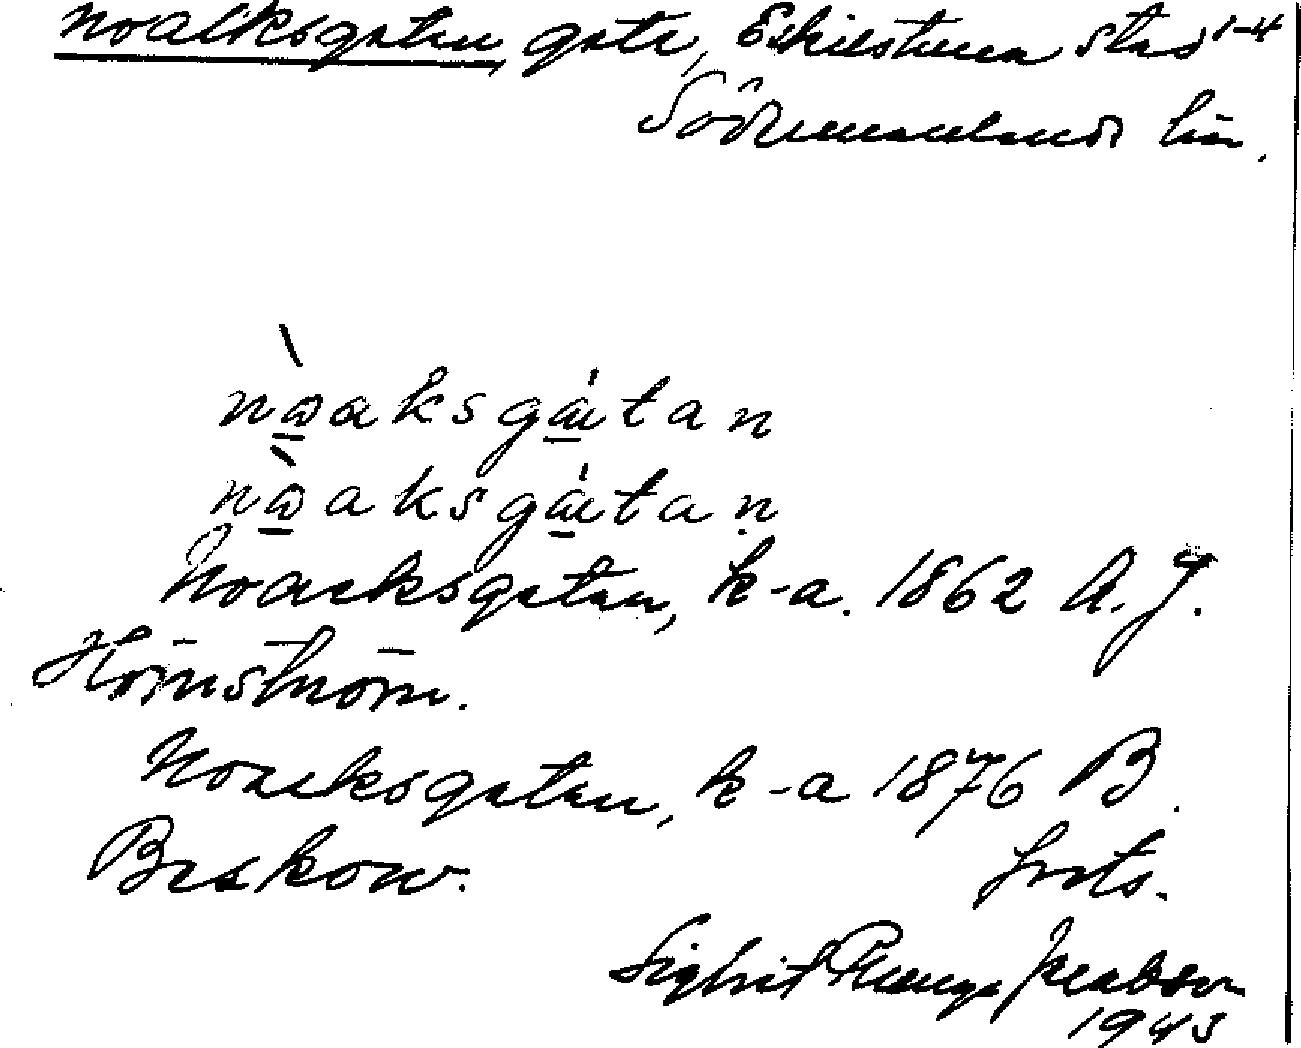 Noacksgatan, gata, Eskilstuna stad 1-4
Södermanlands län.
nὼ̲aksgɑ̲́tan
nὼ̲aksgɑ̲́taṇ
Noacksgatan, k-a. 1862 A. J.
Hörnström.
Noacksgatan, k-a 1876 B.
Beskow. forts.
Sigbrit Plænge Jacobson
1945